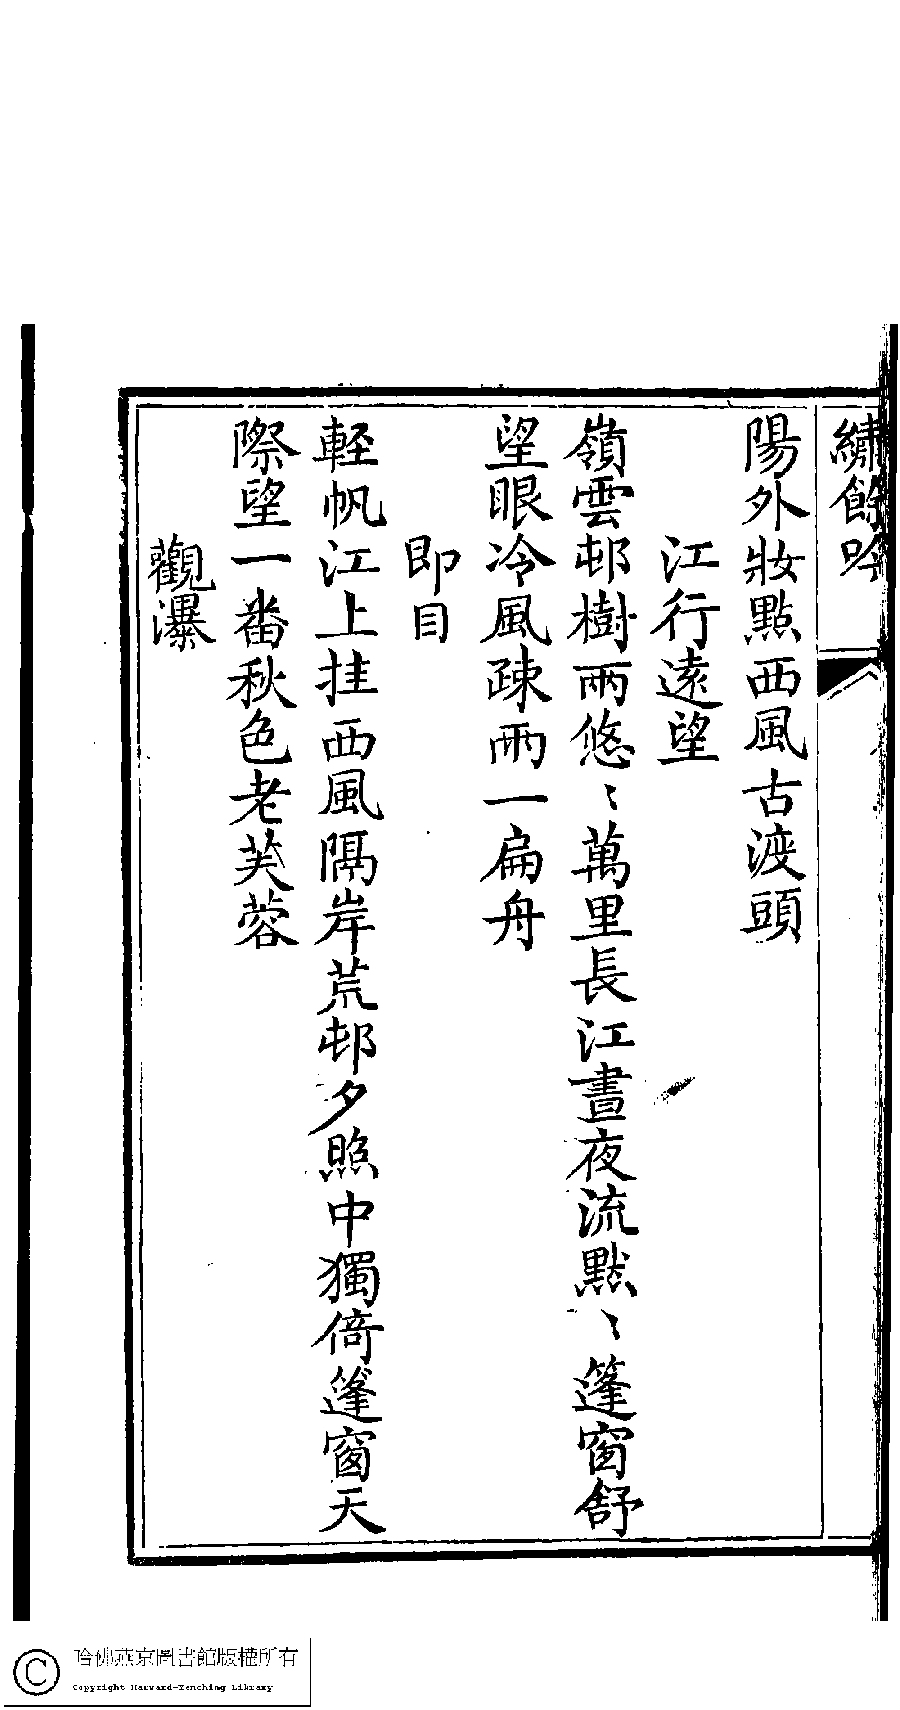 繡餘吟
陽外妝點西風古渡頭
江行遠望
嶺雲邨樹兩悠〻萬里長江晝夜流默〻篷窗舒
望眼冷風疎雨一扁舟
即目
輕帆江上挂西風隔岸荒邨夕照中獨倚篷窗天
際望一番秋色老芙蓉
觀瀑
哈佛燕京圖書館版權所有
Copyright Harvard-Yenching Library